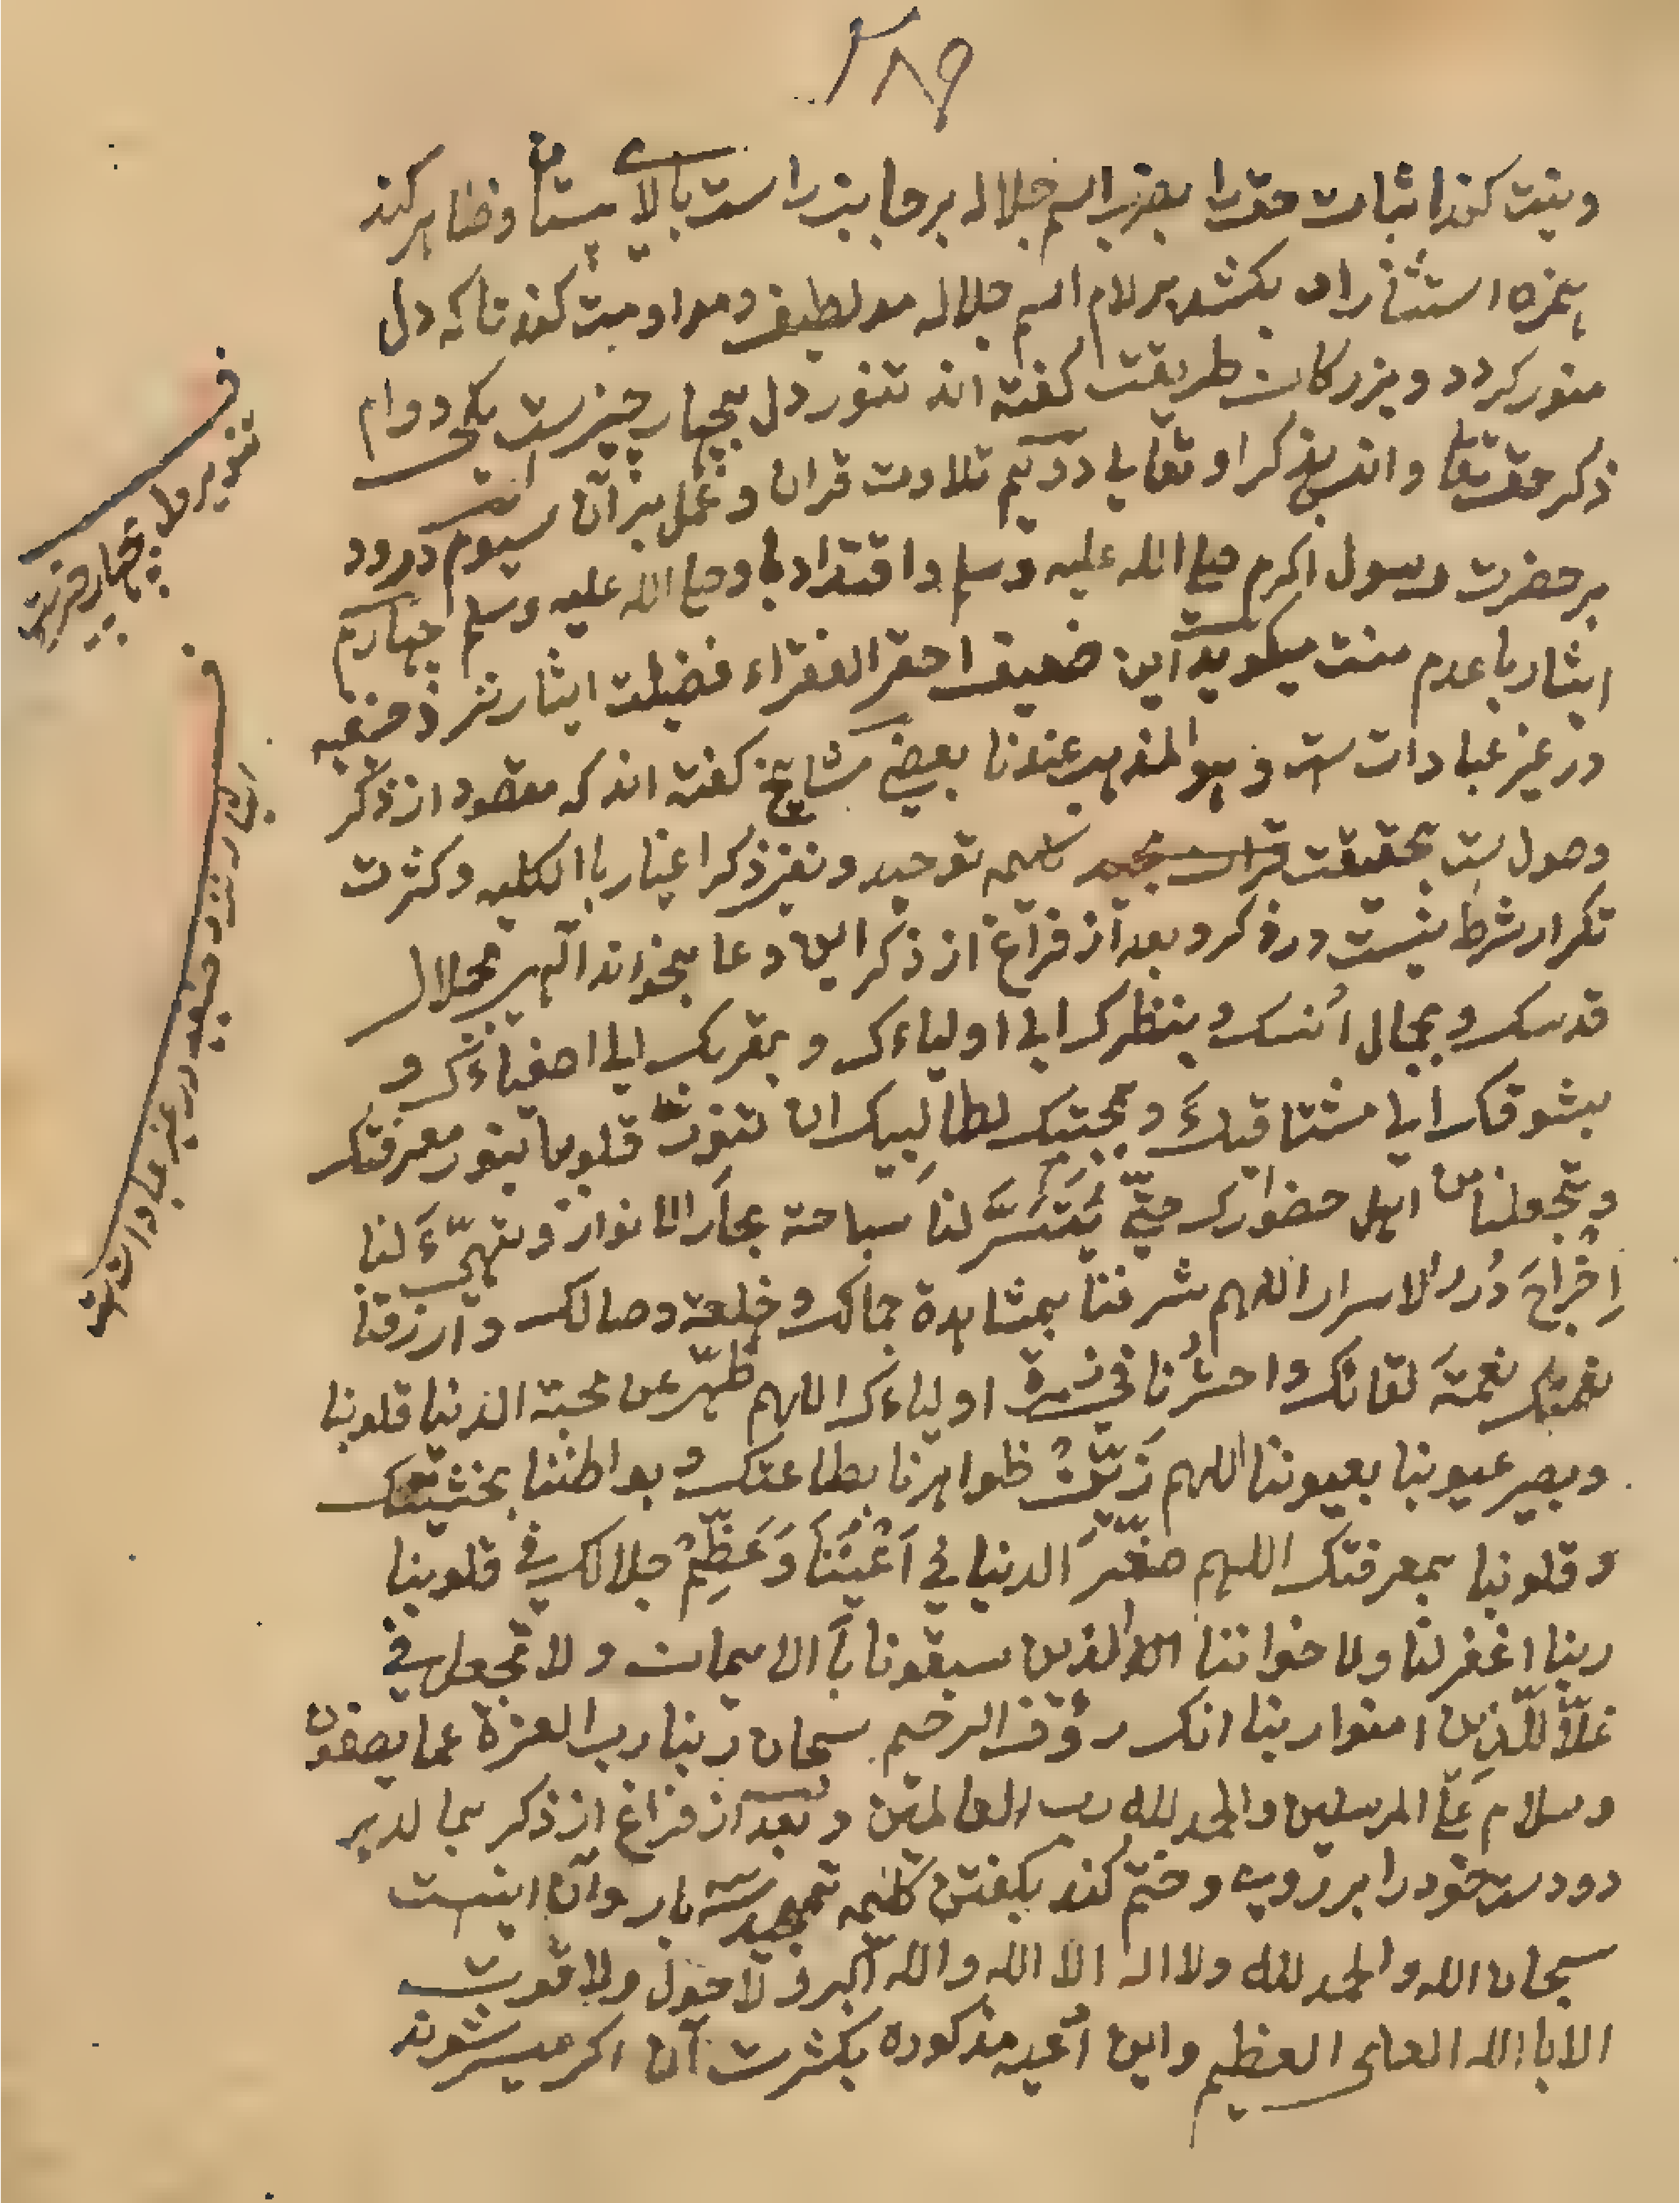 ۳۸۹
ونیت کند اثبات حق را بضرب اسم جلاله بر جانب راست بالای پستان وظاهر کند
همزه استثنا را و بکشد بر لام اسم جلاله مد لطیف و مداومت کند تا که دل
منور کردد وبزرکان طریقت کفته اند تنور دل بچهار چیزست یکی دوام
ذکر حق تعالی وانس بذکر او تعالی دویم تلاوت قران وعمل بر آن سیوم درود
بر حضرت رسول اکرم صلی الله علیه وسلم واقتداد باو صلی الله علیه وسلم چهارم
ایثار با عدم منت میکوید این ضعیف احقر الفقراء فضیلت ایثار نزد حنفیه
در غیر عبادات ست وهو المذهب عندنا بعضی مشایخ کفته اند که مقصود از ذکر
وصول ست بحقیقت کلمه توحید ونفی ذکر اغیار باالکلیه وکثرت
تکرار شرط نیست در ذکر وبعد از فراغ از ذکر این دعا بخواند الهی بجلال
قدسک وبجمال انسک وبنظرک الی اولیاءک وبقربک الی اصفیاءک و
بشوقک الی مشتاقیک وبمحبتک لطالبیک ان تنور قلوبنا بنور معرفتک
وتجعلنا من اهل حضورک حتی یتیسر لنا سباحة بحار الانوار ویتهیّء لنا
اِخراجَ دُرر الاسرار اللهم شرفنا بمشاهدة جمالک وخلعة وصالک وارزقنا
نعمتک نعمةَ لقائک واحشرنا فی زمرة اولیاءک اللهم طهّر عن محبة الدنیا قلوبنا
وبصیر عیوبنا بعیوننا اللهم زیّن ظواهرنا بطاعتک وبواطننا بخشیتک
وقلوبنا بمعرفتک اللهم صغّر الدنیا فی اَعْیُنَنا وَعَظِّمْ جلالک فی قلوبنا
ربنا اغفر لنا ولاخواننا الذین سبقونا باالایمان ولا تجعل فی
غلّا للّذین امنوا ربنا انک رؤف الرحیم سبحان ربنا رب العزة عما یصفون
وسلام علی المرسلین والحمد لله رب العالمین وبعد از فراغ از ذکر بمالد بر
دو دست خود را بر روی وختم کند بکفتن کلمه تمجید سه بار وان اینست
سبحان الله والحمد لله ولا اله الا الله والله اکبر ولا حول ولا قوت
الا باالله العلی العظیم واین ادعیه مذکوره بکثرت آن اکر میسر شوند
ف
تنویر دل بچهار چیزست
ف
ایثار نزد حنفیه در غیر عبادات ست